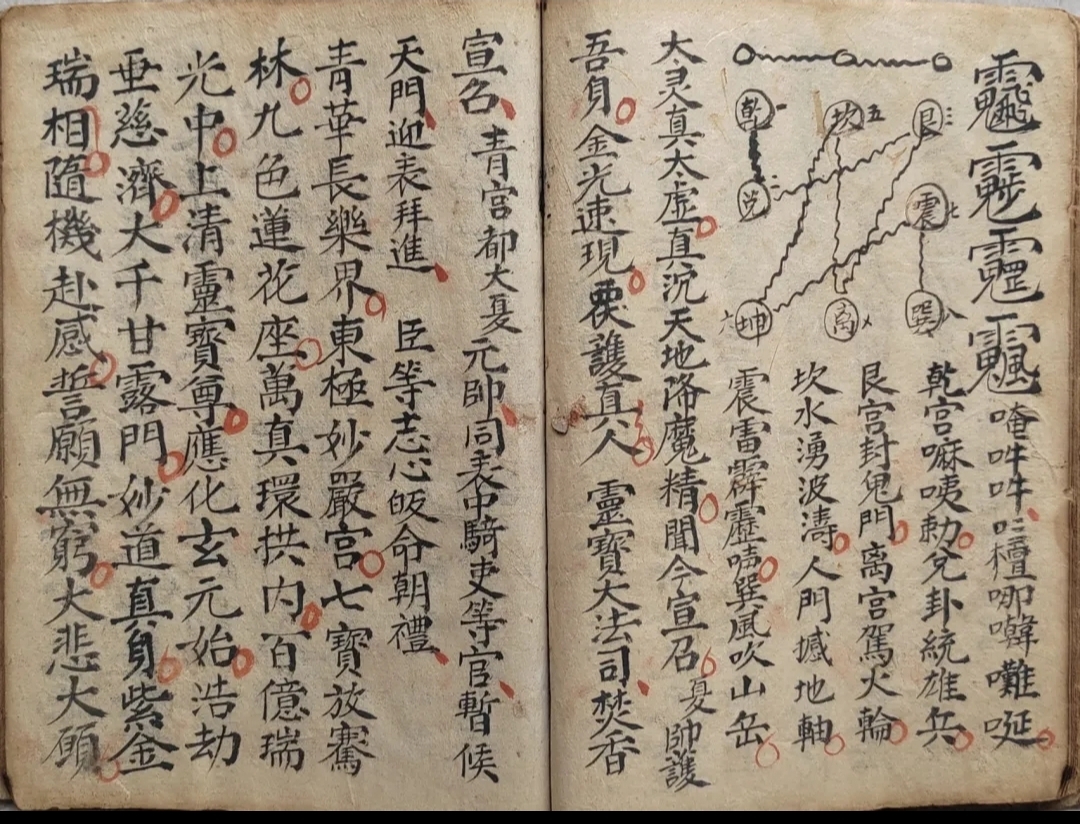 唵吽吽
乾一
兌二
坎五
艮三
震七
坤六
离
巽八
乾宮嘛咦勅兌卦統雄兵
艮宮封鬼門离宮駕火輪
坎水湧波濤人門撼地軸
震雷霹靂巽風吹山岳
太灵真太虛真沉天地降魔精聞今宣召夏帥護
吾身金光速現護真人 靈寶大法司焚香
宣召青宮都大夏元帥同表中騎吏等官暫候
天門迎表拜進 臣等志心皈命朝禮
青華長樂界東極妙嚴宮七寶放騫
林九色蓮花座萬真環拱内百億瑞
光中上清靈寶尊應化玄元始浩劫
垂慈濟大千甘露門妙道真身紫金
瑞相隨機赴感誓願無窮大悲大願